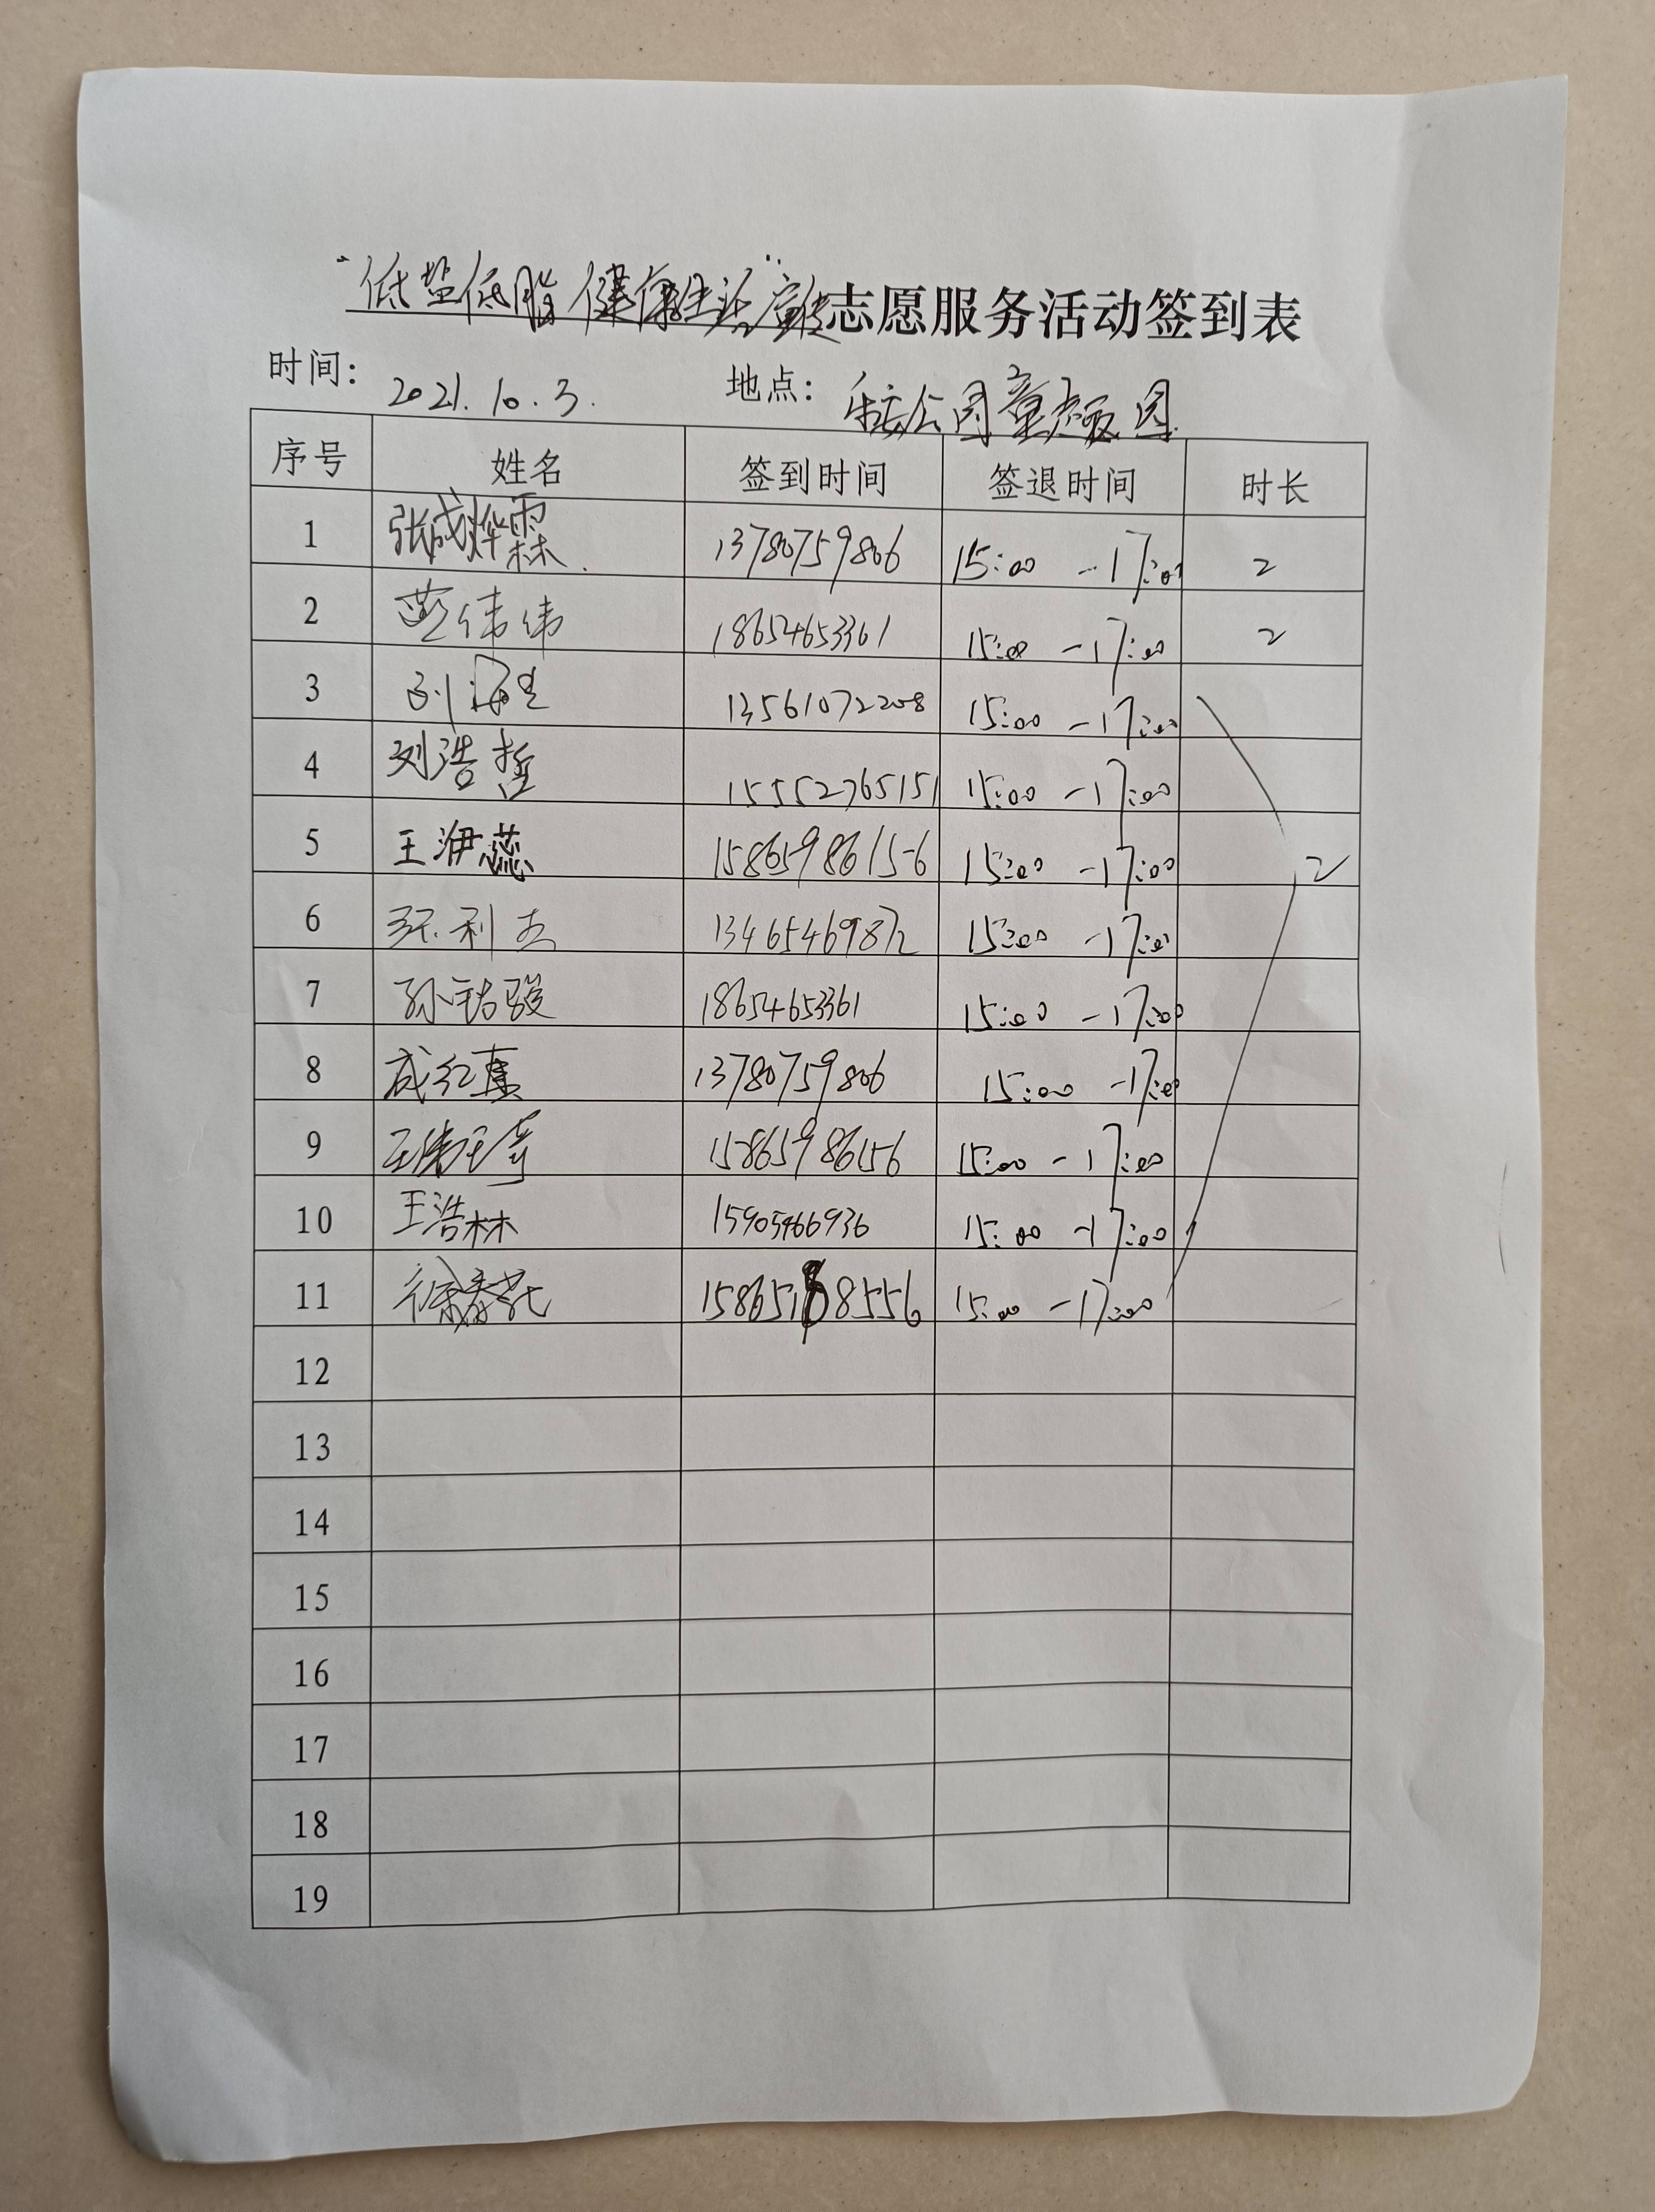 “低盐低脂 健康生活”宣传志愿服务活动签到表
时间: 2021.10.3. 地点: 公园童趣园
序号 姓名 签到时间 签退时间 时长
1 张成烨霖 13780759806 15:00 -17:00 2
2 伟伟 18654653361 15:00 -17:00 2
3 刘 13561072208 15:00 -17:00
4 刘浩哲 15552765151 15:00 -17:00
5 王洢蕊 15865986156 15:00 -17:00 2
6 利 13465469872 15:00 -17:00
7 孙钴骏 18654653361 15:00 -17:00
8 成红真 13780759806 15:00 -17:00
9 王 15865986156 15:00 -17:00
10 王浩林 15905466936 15:00 -17:00
11 徐 15865188556 15:00 -17:00
12
13
14
15
16
17
18
19